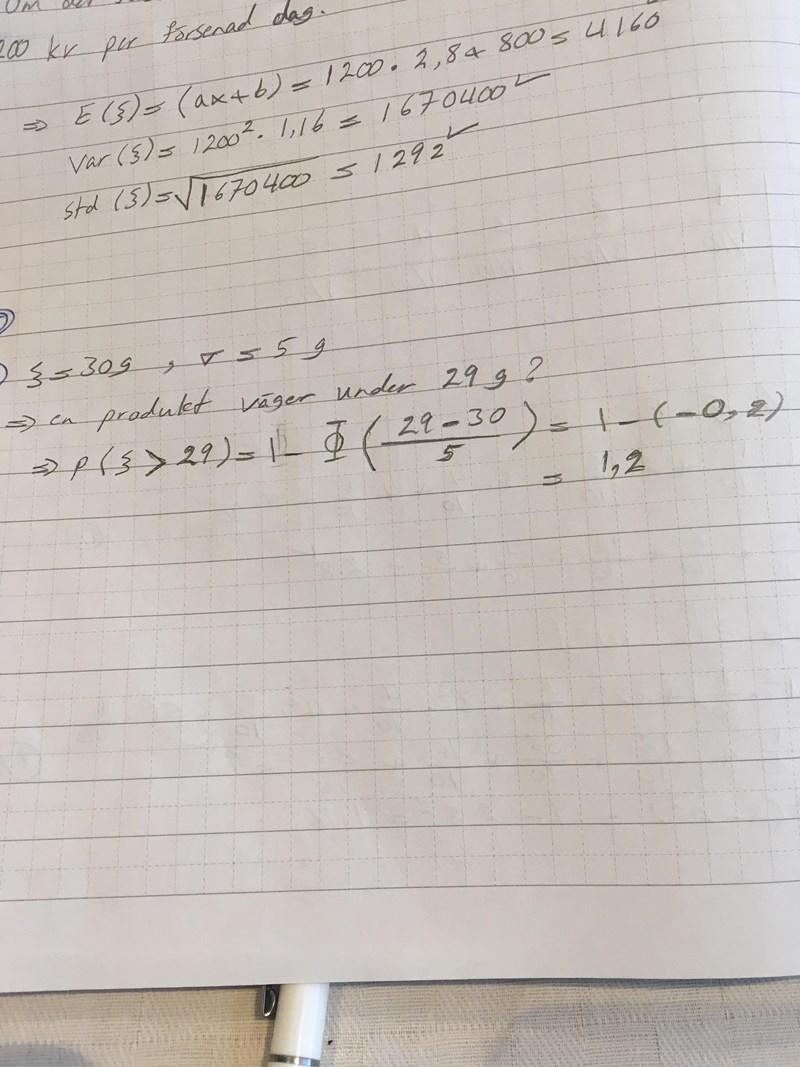 Om
200 kr per försenad dag.
⇒ E(ξ) = (ax+b) = 1200 · 2,8 + 800 = 4160
Var(ξ) = 1200² · 1,16 = 1670400 ✓
std(ξ) = √1670400 = 1292 ✓
ξ = 30g , σ = 5 g
⇒ en produkt väger under 29 g?
⇒ P(ξ > 29) = 1 - Φ((29-30)/5) = 1 - (-0,2)
= 1,2